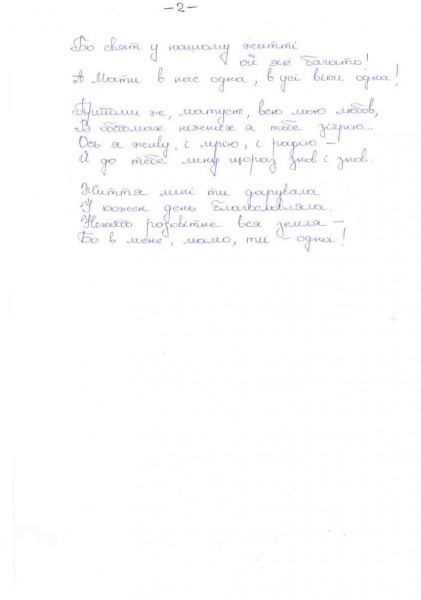 -2-
Бо свят у нашому житті
ой як багато!
А Мати в нас одна, в усі віки одна!
Прийми ж, матусю, всю мою любов,
В обіймах ніжних я тебе зігрію...
Ось я живу, і мрію, і радію -
Й до тебе лину щораз знов і знов.
Життя мені ти дарувала
У кожен день благословляла.
Нехай розквітне вся земля -
Бо в мене, мамо, ти - одна!